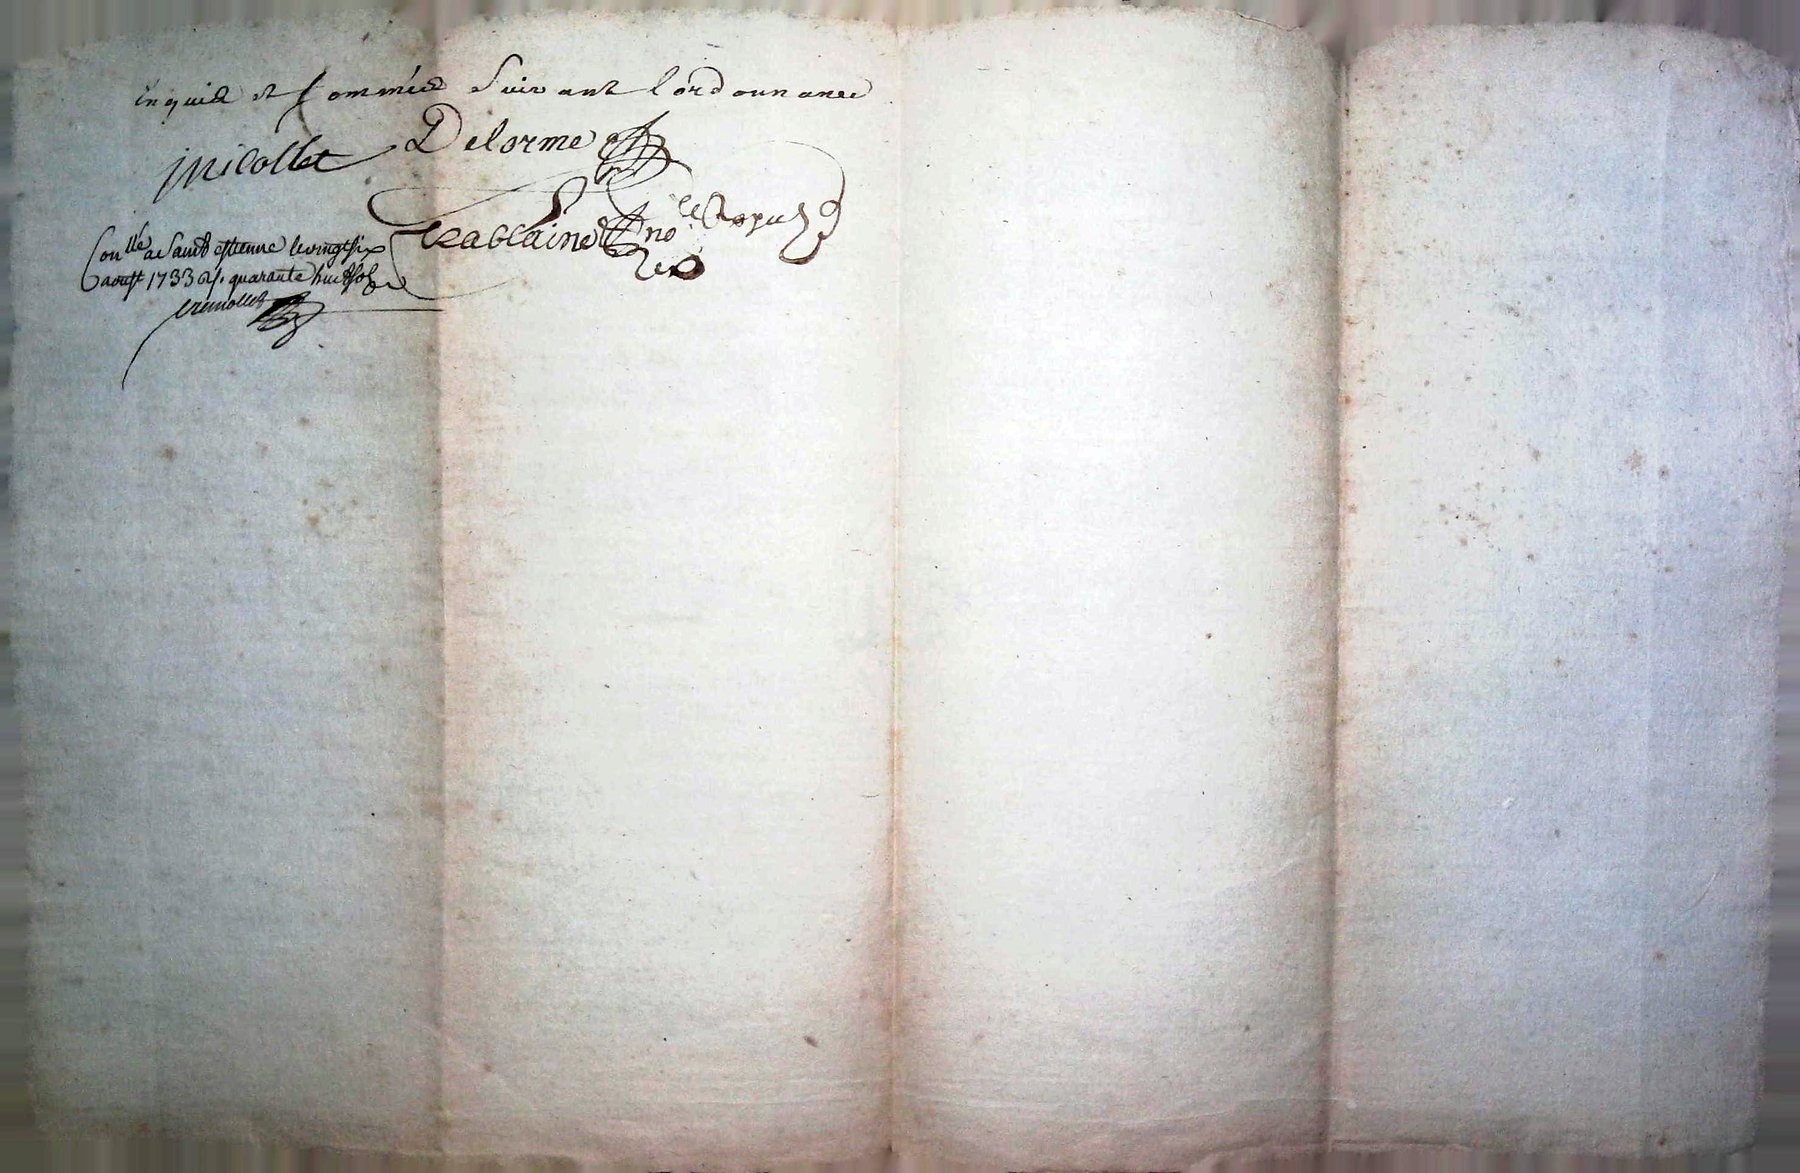 Enquis et sommés suivant lordonnance
jnicollet Delorme
Trablaine no.re Royal
Conllé a Saint estienne le vingt six
aoust 1733 R. quarante huit sols